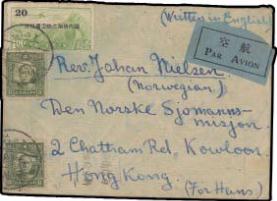 20
(Written in English)
空航
PAR AVION
Rev. Johan Nielsen
(Norwegian)
Den Norske Sjomanns-
misjon
2 Chattham Rd., Kowloon
Hong Kong.
(For Hans)